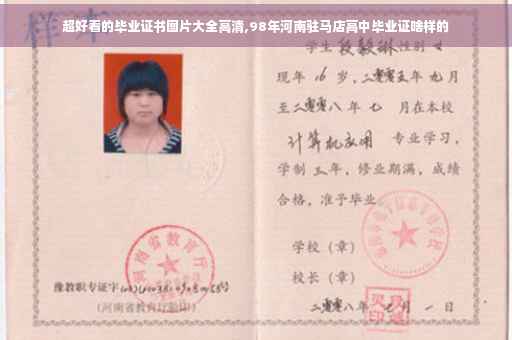 超好看的毕业证书图片大全高清,98年河南驻马店高中毕业证啥样的
样本
学生 段毅琳 性别 女
现年 16 岁,二零零五年 九月
至二零零八年 七 月在本校
计算机应用 专业学习,
学制 三 年,修业期满,成绩
合格,准予毕业
河南省教育厅
学校(章)
校长(章)
豫教职专证字
(河南省教育厅验印)
二零零八年 月 一 日